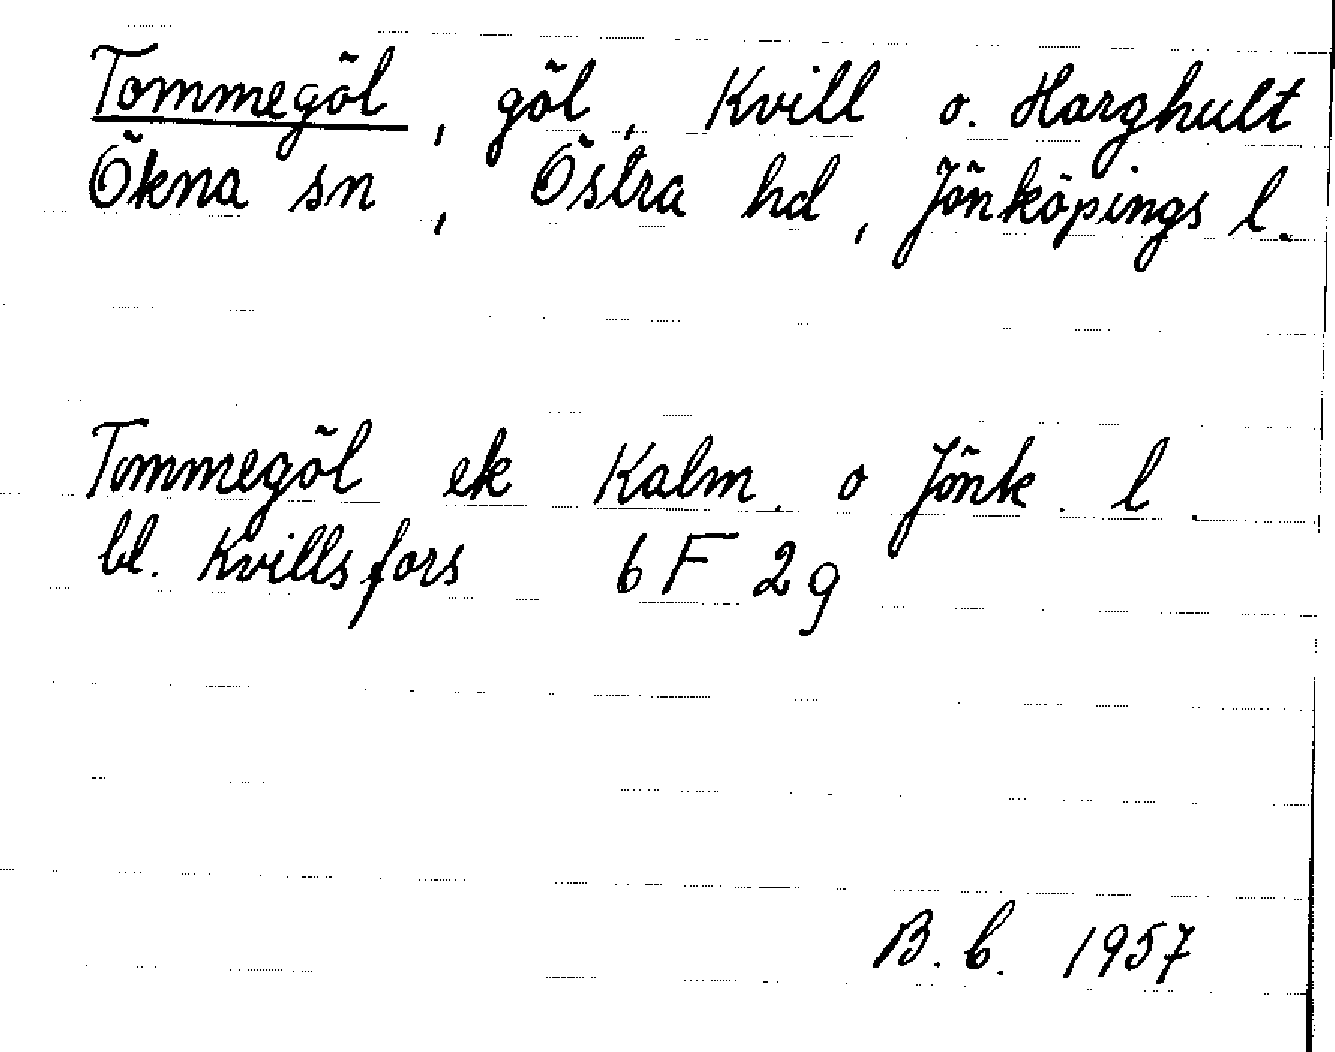 Tommegöl, göl, Kvill o. Harghult
Ökna sn, Östra hd, Jönköpings l.
Tommegöl ek Kalm. o Jönk. l.
bl. Kvillsfors 6 F 2 g
B. b. 1957